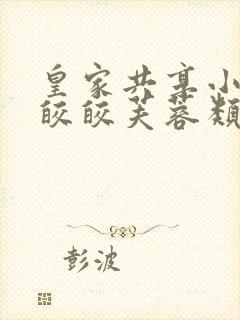 皇家共享小
皎皎芙蓉類
彭波